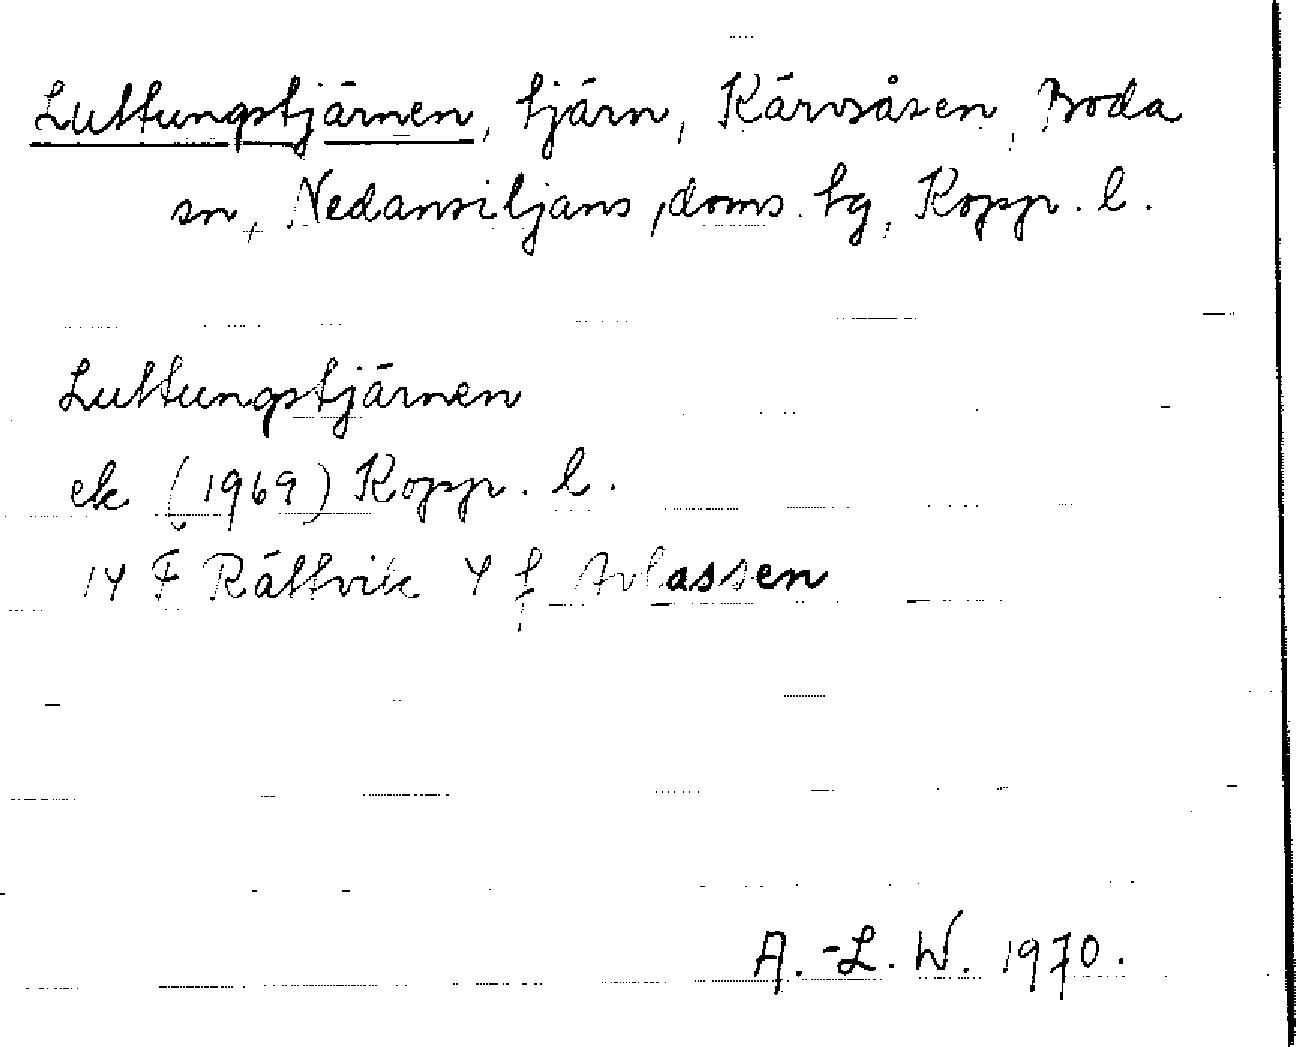 Luttungstjärnen, tjärn, Kärvsåsen, Boda
sn, Nedansiljans doms. tg, Kopp. l.
Luttungstjärnen
ek (1969) Kopp. l.
14 F Rättvik 4 f Avlassen
A.-L. W. 1970.